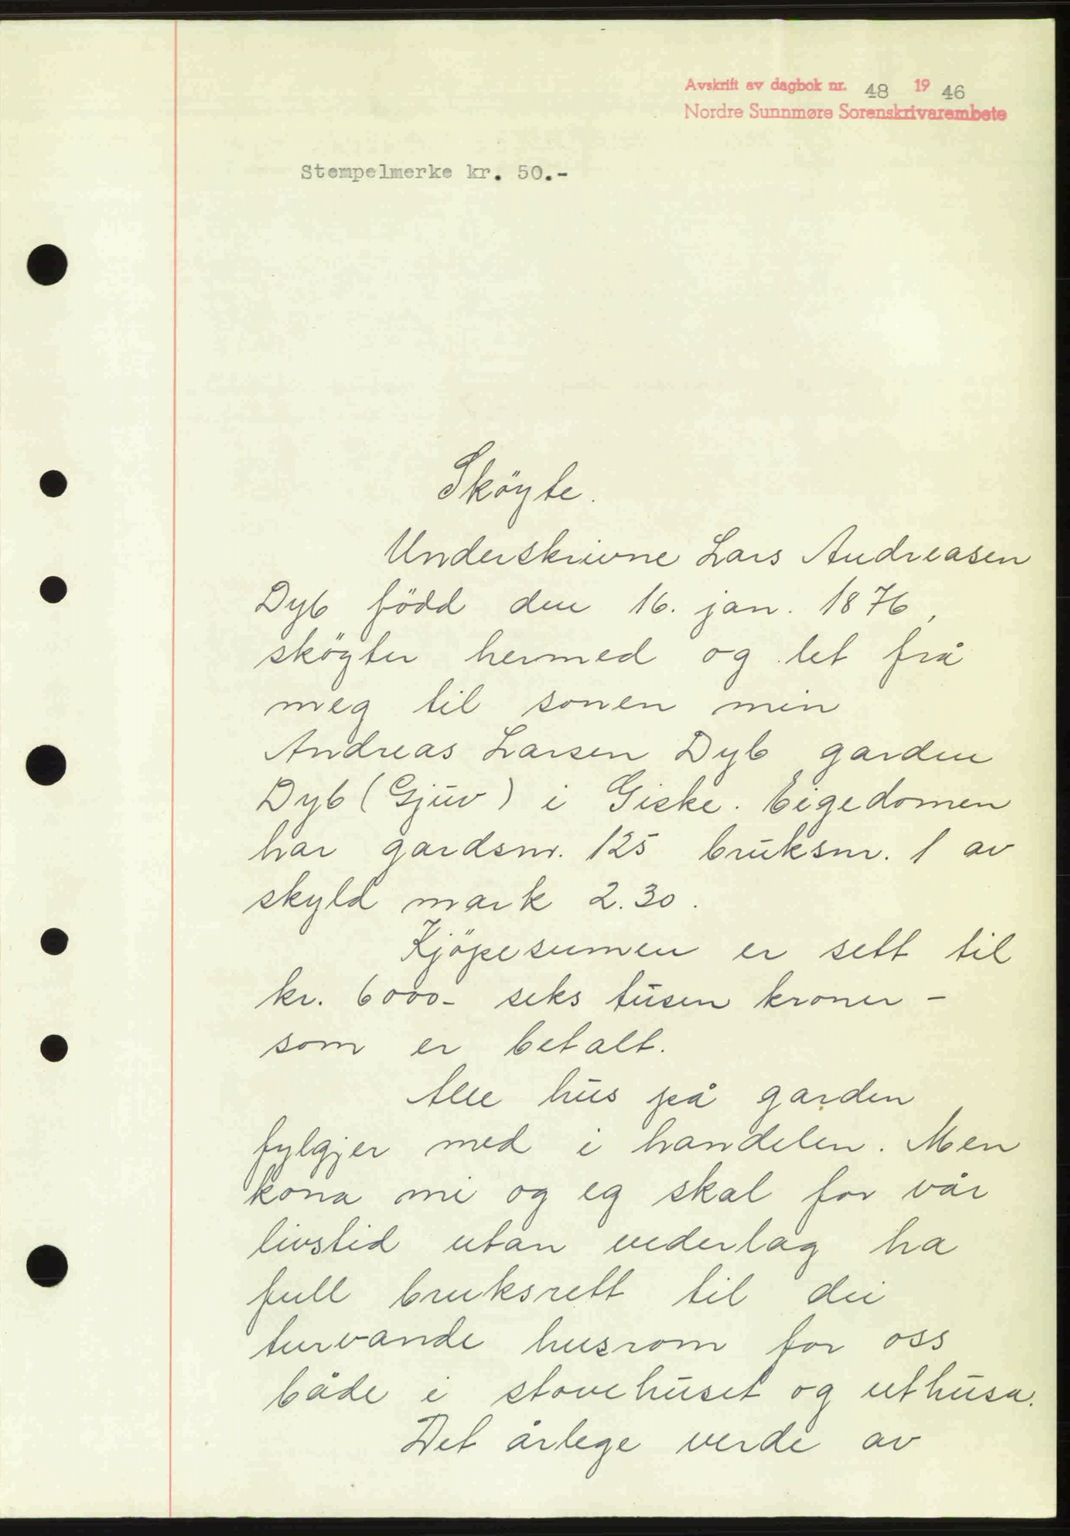 Avskrift av dagbok nr. 48 19 46
Nordre Sunnmøre Sorenskrivarembete
Stempelmerke kr. 50.-
Sköyte.
Underskrivne Lars Andreasen
Dyb född den 16. jan. 1876,
sköyter hermed og let frå
meg til sonen min
Andreas Larsen Dyb garden
Dyb (Gjuv) i Giske. Eigedomen
har gardsnr. 125 bruksnr. 1 av
skyld mark 2.30.
Kjöpesumen er sett til
kr. 6000- seks tusen kroner -
som er betalt.
Alle hus på garden
fylgjer med i handelen. Men
kona mi og eg skal for vår
livstid utan vederlag ha
full bruksrett til dei
turvande husrom for oss
både i stovehuset og uthusa.
Det årlege verde av